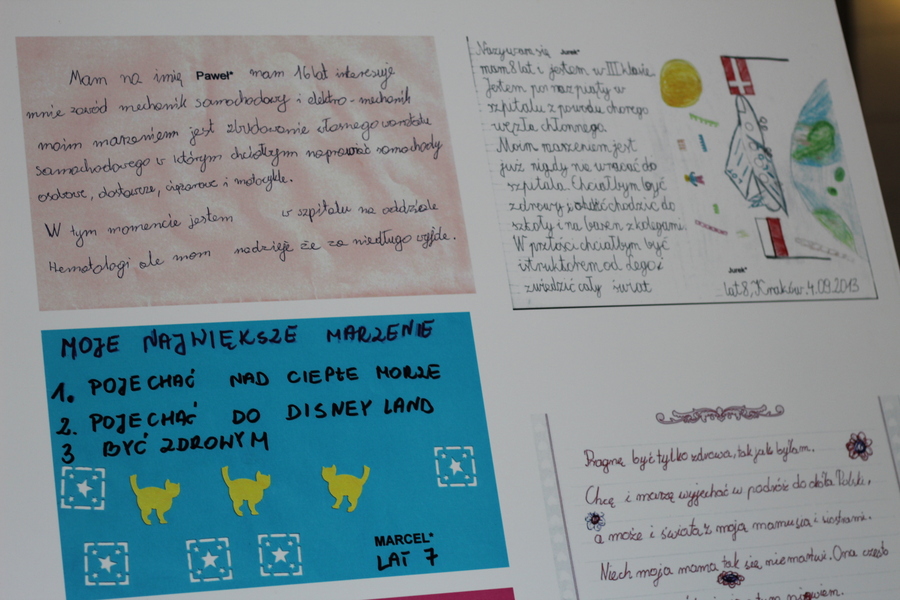 Mam na imię Paweł* mam 16 lat interesuje
mnie zawód mechanik samochodowy i elektro-mechanik
moim marzeniem jest zbudowanie własnego warsztatu
samochodowego w którym chciałbym naprawiać samochody
osobowe, dostawcze, ciężarowe i motocykle.
W tym momencie jestem w szpitalu na oddziale
Hematologi ale mam nadzieje że za niedługo wyjdę.
Nazywam się Jurek*
mam 8 lat i jestem w III klasie.
Jestem po raz piąty w
szpitalu z powodu chorego
węzła chłonnego.
Moim marzeniem jest
już nigdy nie wracać do
szpitala. Chciałbym być
zdrowy, chodzić do
szkoły i na basen z kolegami.
W przyszłości chciałbym być
istruktorem od Lego i
zwiedzić cały świat
Jurek*
lat 8, Kraków. 4.09.2013
MOJE NAJWIĘKSZE MARZENIE
1. POJECHAĆ NAD CIEPŁE MORZE
2. POJECHAĆ DO DISNEY LAND
3 BYĆ ZDROWYM
MARCEL*
LAT 7
Pragnę być tylko zdrowa, tak jak byłam.
Chcę i marzę wyjechać w podróż do koła Polski,
a może i świata z moją mamusią i siostrami.
Niech moja mama tak się nie martwi. Ona często